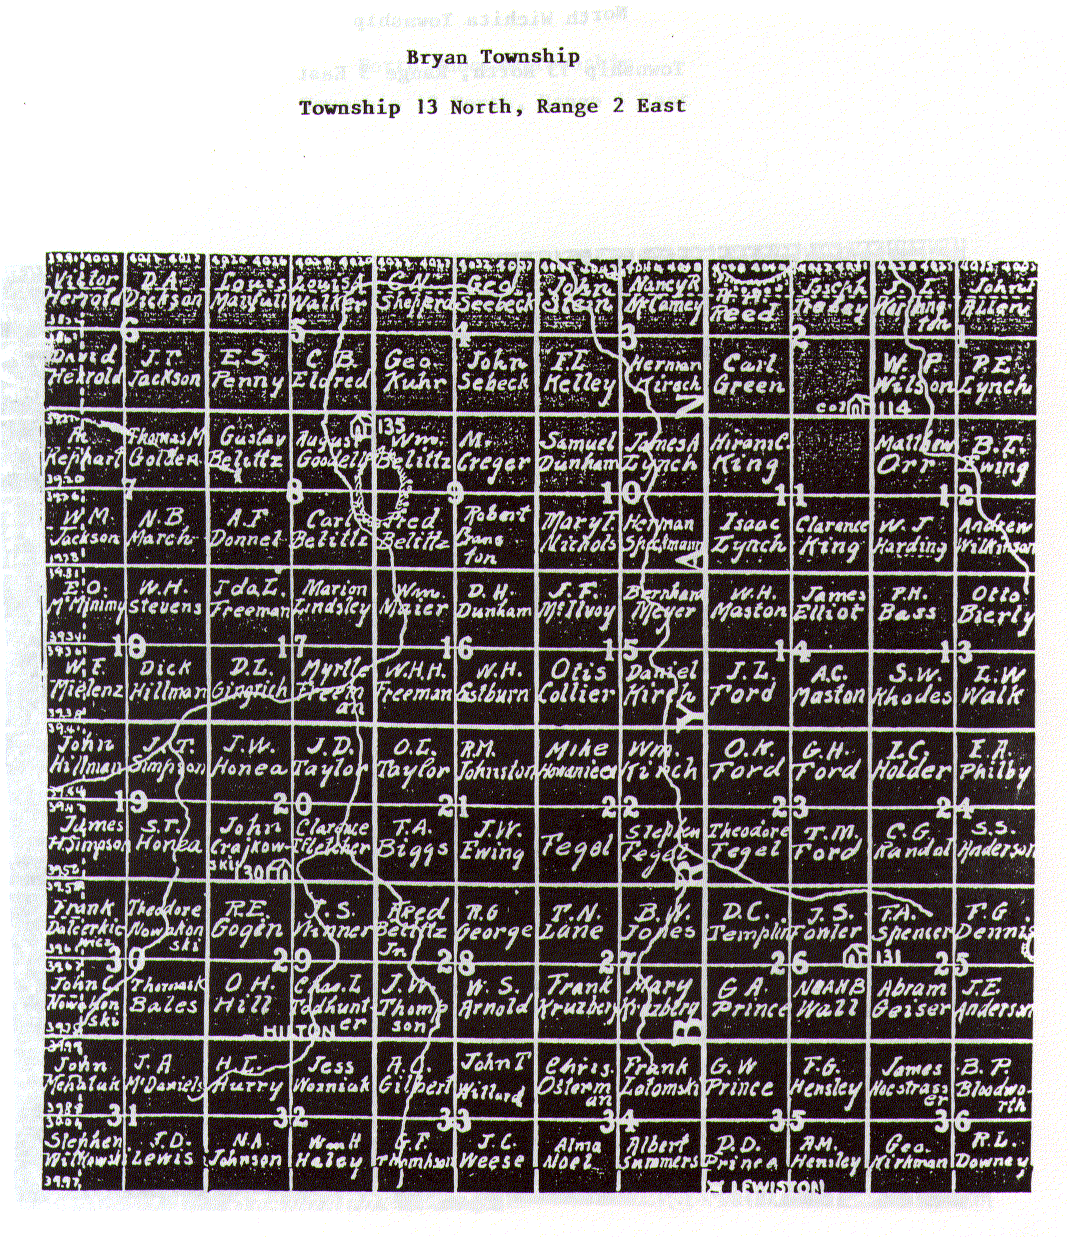 Bryan Township
Township 13 North, Range 2 East
Victor D.A. Louis Louis A Geo. John Nancy R Joseph John F
Herrold Dickson Walker Seebeck Reed
6 5 4 3 2 1
David J.T. E.S. C.B. Geo. John F.L. Herman Carl W. P P.E.
Jackson Penny Eldred Kuhr Sebeck Kelley Kirsch Green Wilson Lynch
114
135
Thomas M Gustav August Wm. M. Samuel James A Hiram C. Matthew B.T.
Kephart Golden Belittz Belittz Creger Dunham Lynch King Orr Ewing
7 8 9 10 11 12
W.M. N.B. A.F Carl Fred Robert Mary T. Herman Isaac Clarence W. J Andrew
Jackson March Donnel Belittz Belittz Nichols Lynch King Harding Wilkinson
E.O. W.H. Ida L. Marion Wm. D.H. J.F. Bernham W.H. James P.H. Otto
Stevens Freeman Lindsley Maier Dunham McIlvoy Meyer Maston Elliot Bass Bierly
18 17 16 15 14 13
W.F. Dick D.L. Myrtle W.H.H. W.H. Otis Daniel J.L. A.C. S.W. L.W
Mielenz Hillman Gingrich Freeman Freeman Estburn Collier Kirch Ford Maston Rhodes Walk
John J.T. J.W. J.D. O.L. R.M. Mike Wm. O.K. G.H. L.C. E.A.
Hillman Simpson Honea Taylor Taylor Johnston Kirch Ford Ford Holder Philby
19 20 21 22 23 24
James S.T. John Clarence T.A. J.W. Stephen Theodore T.M. C.G. S.S.
H.Simpson Honea Crajkow- Fletcher Biggs Ewing Tegel Tegel Tegel Ford Randol Anderson
ski 130
Frank Theodore R.E. J.S. Fred R.G T.N. B.W. D.C. J.S. T.A. F.G.
Nowakon Gogen Winner Belittz George Lane Jones Templin Fowler Spencer Dennis
ski Jr
131
30 29 28 27 26 25
John C Thomas K O.H. Chas. L J.W. W.S. Frank Mary G A. NOAH B Abram J.E.
Bales Hill Todhunt- Thomp Arnold Kruzberg Kruzberg Prince Wall Geiser Anderson
ski er son
HILTON
John J.A H.L. Jess A.O. John T Chris. Frank G.W F.G. James B.P.
McDaniels Aurry Wozniak Gilbert Willard Osterm Lotomski Prince Hensley Hocstrass Bloodwo-
an er rth
31 32 33 34 35 36
Stephen J.D. N.A. Wm H G.F. J.C. Alma Albert D.D. A.M. Geo. R.L.
Witkowski Lewis Johnson Haley Thomhson Weese Noel Summers Prince Hensley Kirkman Downey
LEWISTON
B R Y A N